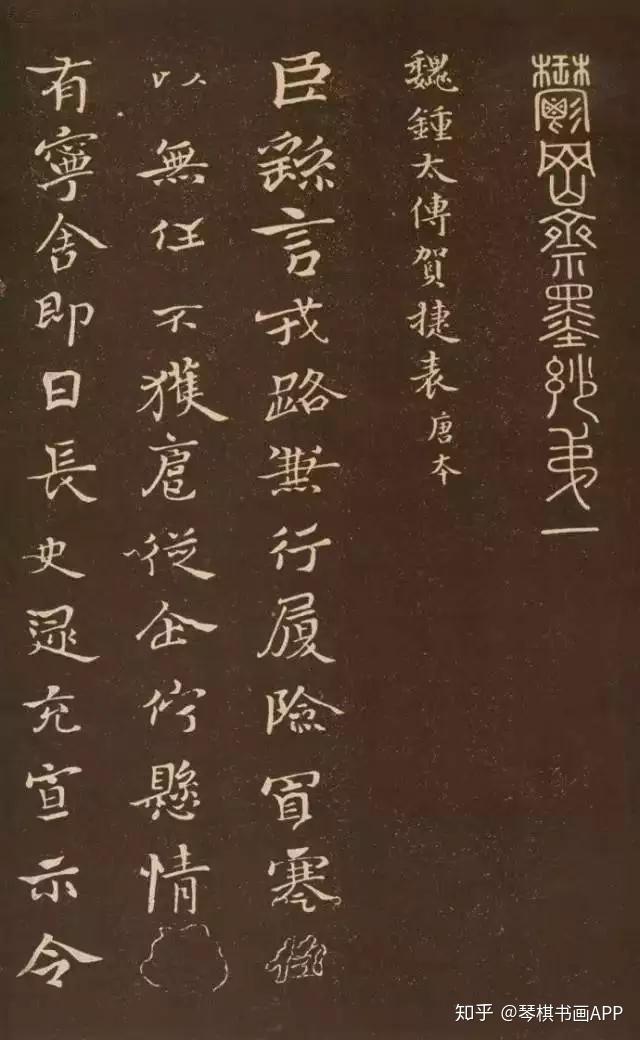 鬱岡齋墨妙弟一
魏鍾太傅賀捷表 唐本
臣繇言戎路兼行履險冒寒
以無任不獲扈從企佇懸情
有寧舍即日長史逯充宣示令
知乎 @琴棋书画APP